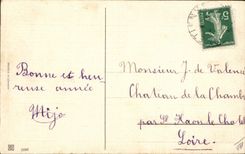 Bonne et heu-
reuse année
Mijo
Monsieur J. de Valence
Chateau de la Chambre
par St Haon le Chatel
Loire.
5